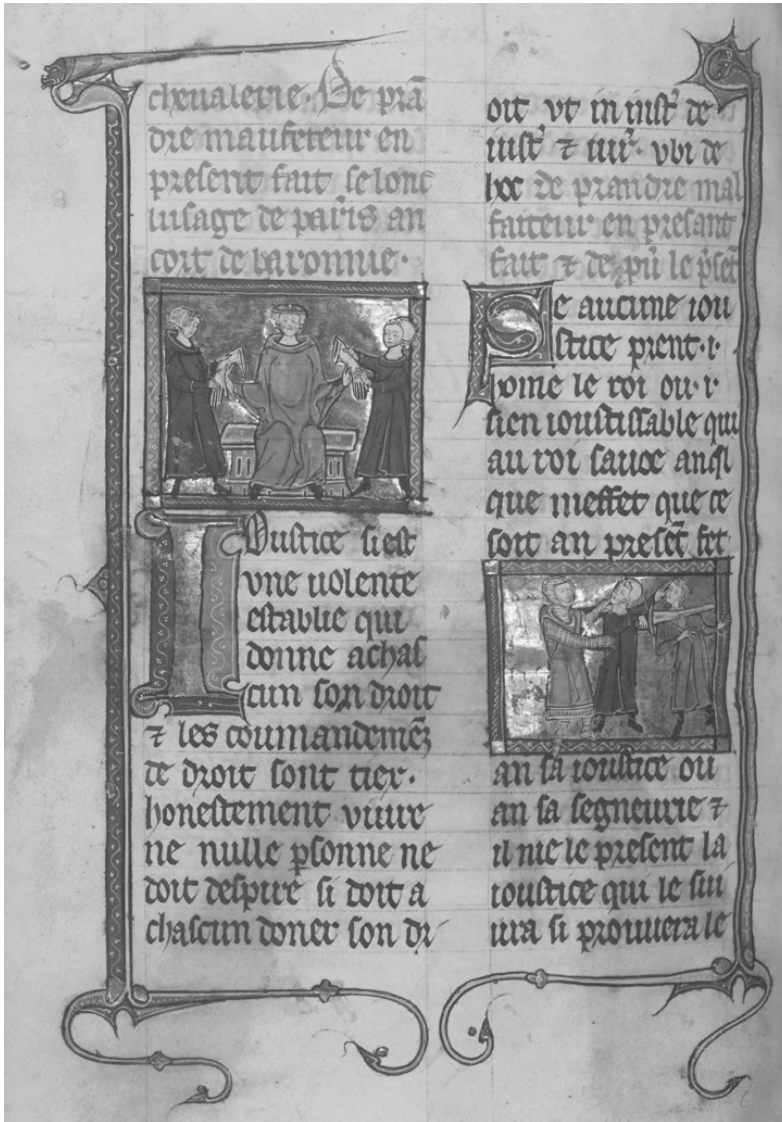 cheualerie. De prā
dre maufeteur en
present fait selonc
lusage de paris an
cort de baronnie.
Ioustice si est
vne uolente
establie qui
donne achas
cun son droit
⁊ les coumandemēz
de droit sont tier.
honestement viure
ne nulle psonne ne
doit despire si doit a
chascun doner son dr
oit vt in inst' de
iust' ⁊ iur'. vbi de
hoc de prandre mal
faiteur en presant
fait ⁊ de le pset
Se aucune iou
stice prent .i.
home le roi ou .i.
sien ioustissable qui
au roi sauoe
que meffet que ce
soit an preset fet
an sa ioustice ou
an sa segneurie ⁊
il nie le present la
ioustice qui le sui
ura si prouuera le